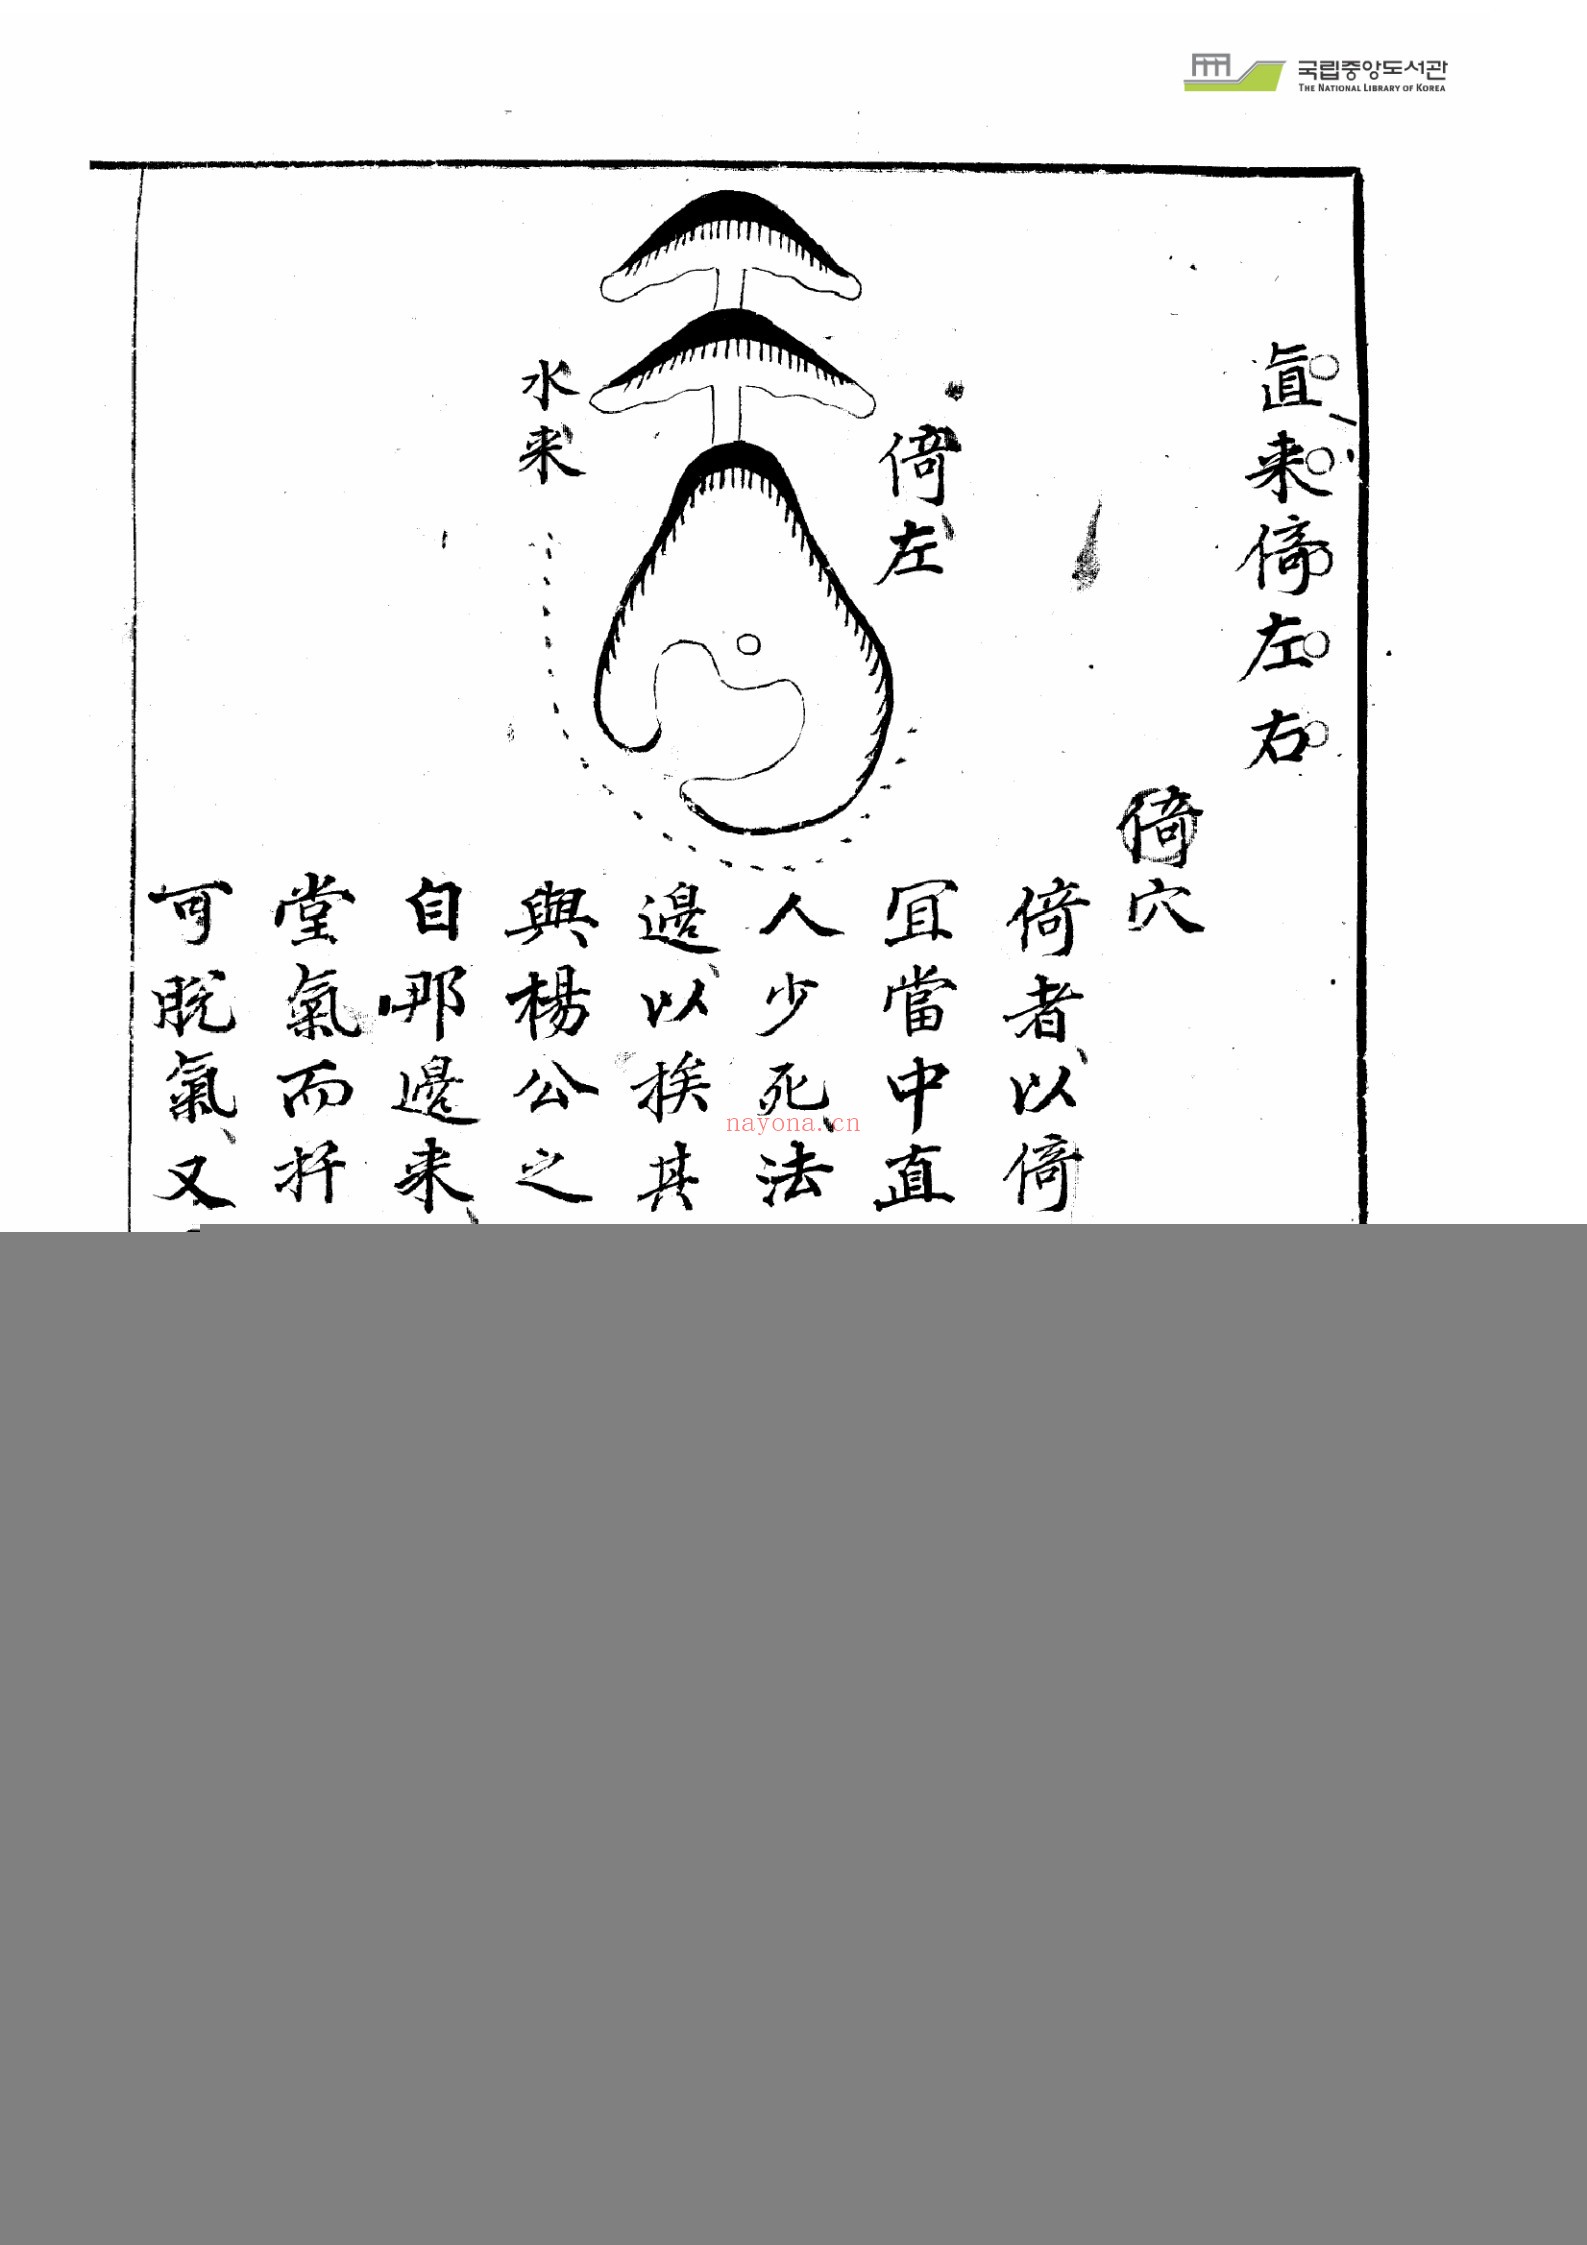 국립중앙도서관
THE NATIONAL LIBRARY OF KOREA
直来倚左右
倚左
水来
倚穴
倚者以倚
冝當中直
人少死法
邉以挨其
與楊公之
自那邉来
堂氣而扦
可脫氣又
nayona.cn